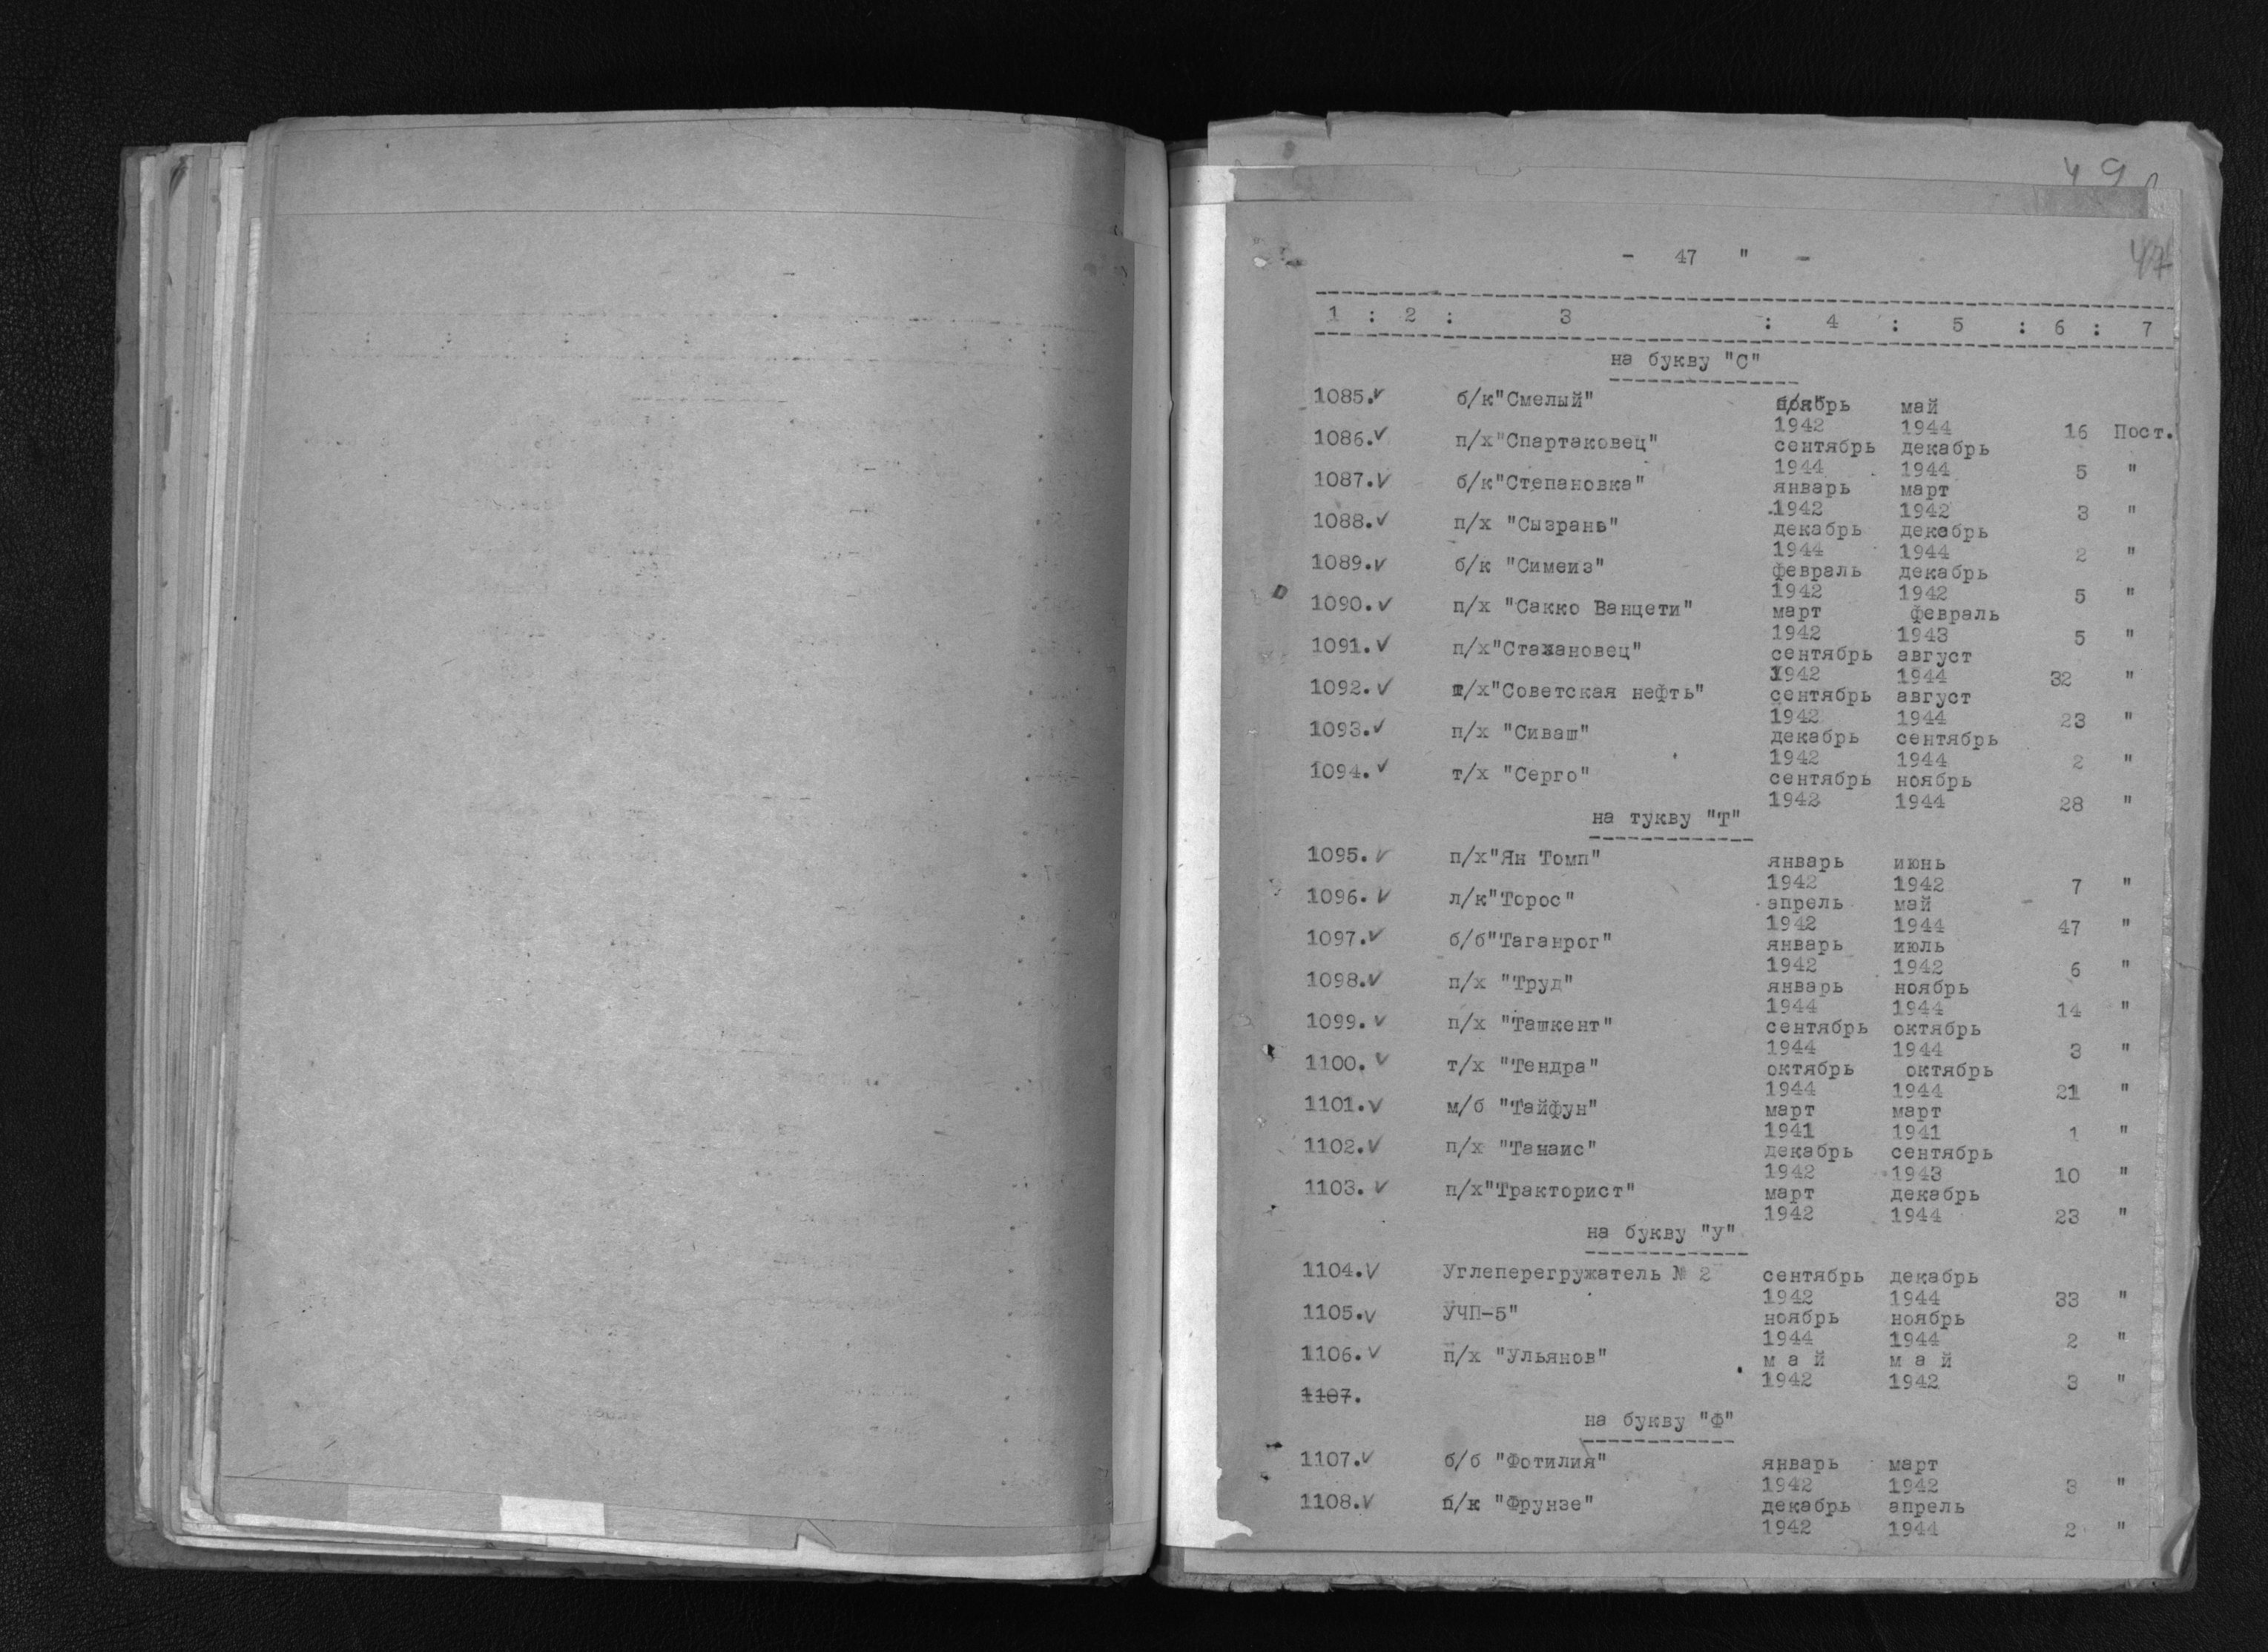 49
- 47 " -
47
1 : 2 : 3 : 4 : 5 : 6 : 7
на букву "С"
1085.✓ б/к"Смелый" ноябрь май
1942 1944 16 Пост.
1086.✓ п/х"Спартаковец" сентябрь декабрь
1944 1944 5 "
1087.✓ б/к"Степановка" январь март
1942 1942 3 "
1088.✓ п/х "Сызрань" декабрь декабрь
1944 1944 2 "
1089.✓ б/к "Симеиз" февраль декабрь
1942 1942 5 "
1090.✓ п/х "Сакко Ванцети" март февраль
1942 1943 5 "
1091.✓ п/х"Стахановец" сентябрь август
1942 1944 32 "
1092.✓ т/х"Советская нефть" сентябрь август
1942 1944 23 "
1093.✓ п/х "Сиваш" декабрь сентябрь
1942 1944 2 "
1094.✓ т/х "Серго" сентябрь ноябрь
1942 1944 28 "
на тукву "Т"
1095.✓ п/х"Ян Томп" январь июнь
1942 1942 7 "
1096.✓ л/к"Торос" апрель май
1942 1944 47 "
1097.✓ б/б"Таганрог" январь июль
1942 1942 6 "
1098.✓ п/х "Труд" январь ноябрь
1944 1944 14 "
1099.✓ п/х "Ташкент" сентябрь октябрь
1944 1944 3 "
1100.✓ т/х "Тендра" октябрь октябрь
1944 1944 21 "
1101.✓ м/б "Тайфун" март март
1941 1941 1 "
1102.✓ п/х "Танаис" декабрь сентябрь
1942 1943 10 "
1103.✓ п/х"Тракторист" март декабрь
1942 1944 23 "
на букву "У"
1104.✓ Углеперегружатель № 2 сентябрь декабрь
1942 1944 33 "
1105.✓ УЧП-5" ноябрь ноябрь
1944 1944 2 "
1106.✓ п/х "Ульянов" м а й м а й
1942 1942 3 "
1107.
на букву "Ф"
1107.✓ б/б "Фотилия" январь март
1942 1942 3 "
1108.✓ б/к "Фрунзе" декабрь апрель
1942 1944 2 "